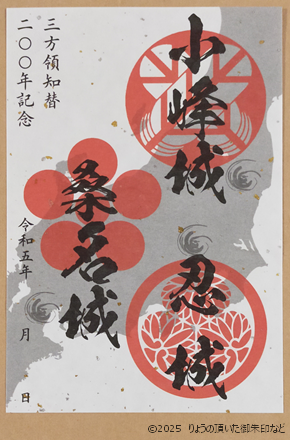 小峰城
忍城
桑名城
三方領知替
二〇〇年記念
令和五年 月 日
©2025 りょうの頂いた御朱印など